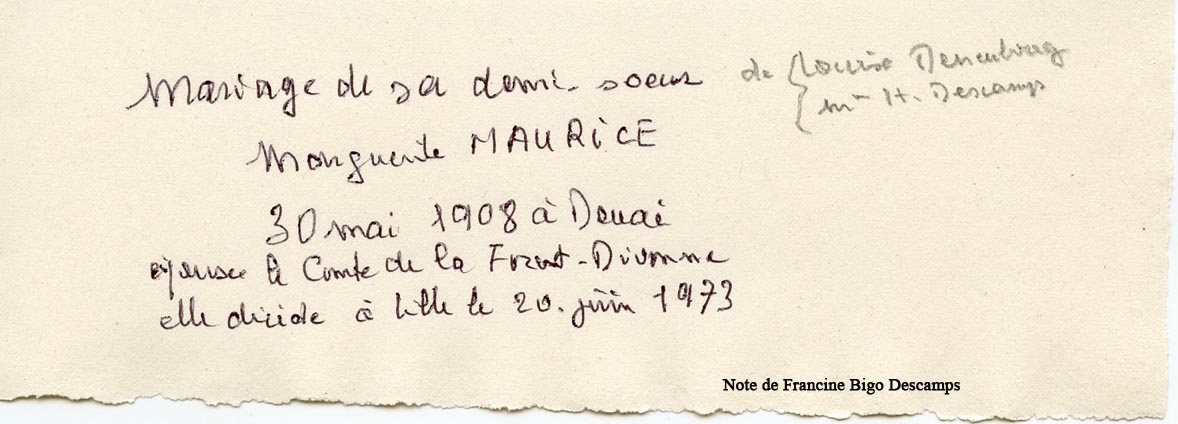 Mariage de sa demi-soeur
de { Louise Denenbourg
{ Mme H. Descamps
Marguerite MAURICE
30 mai 1908 à Douai
épouse le Comte de la Forest-Divonne
elle décide à Lille le 20 juin 1973
Note de Francine Bigo Descamps